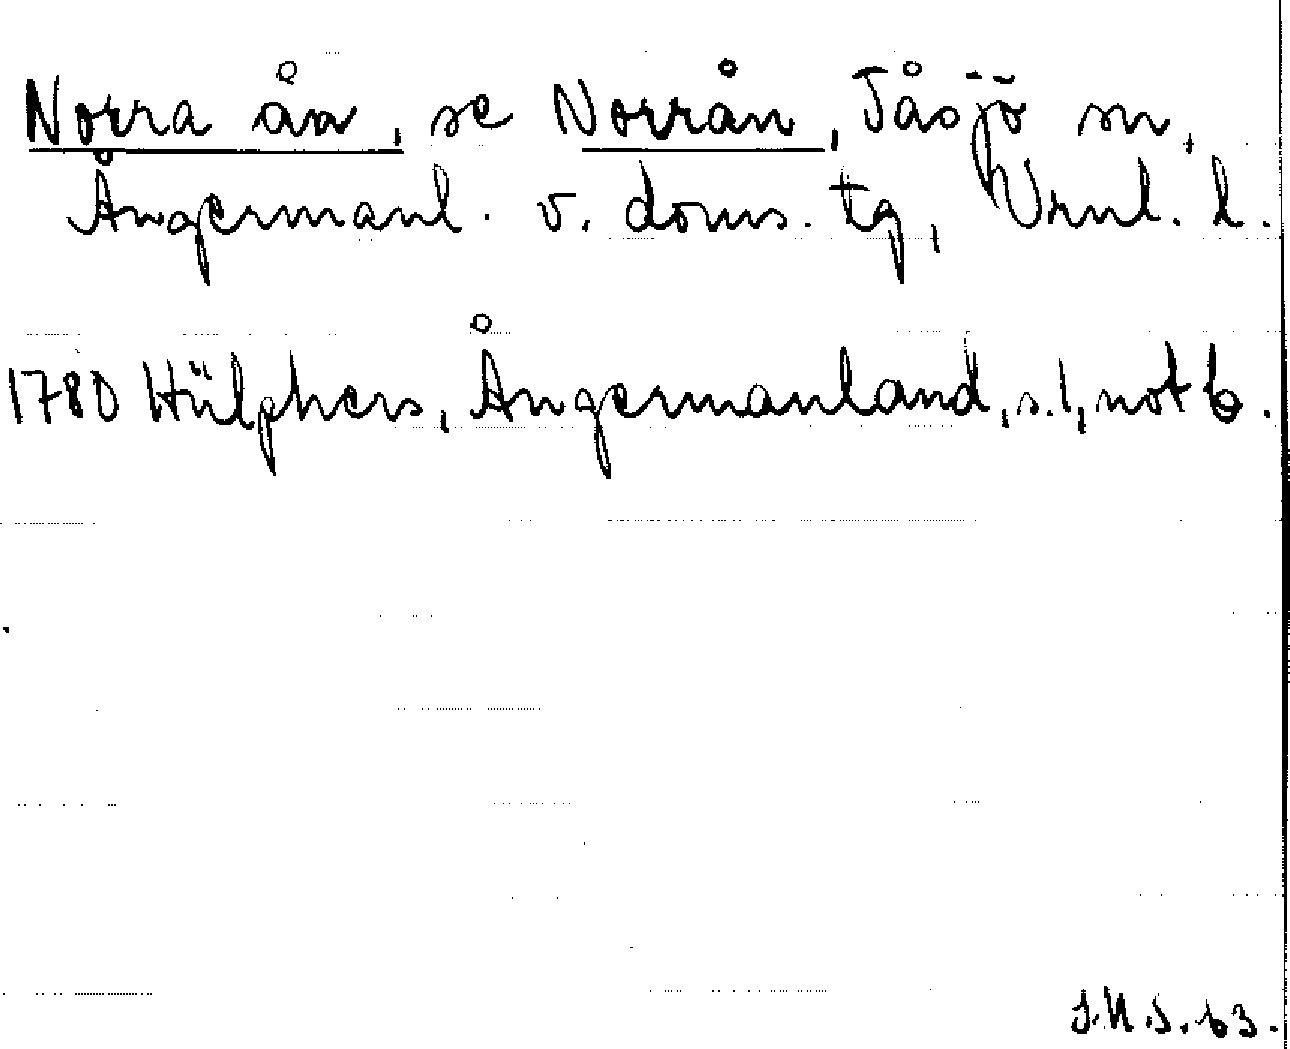 Norra ån, se Norrån, Tåsjö sn,
Ångermanl. v. doms. tg, Vrnl. l.
1780 Hülphers, Ångermanland, s. 1, not b.
J.N.S. 63.